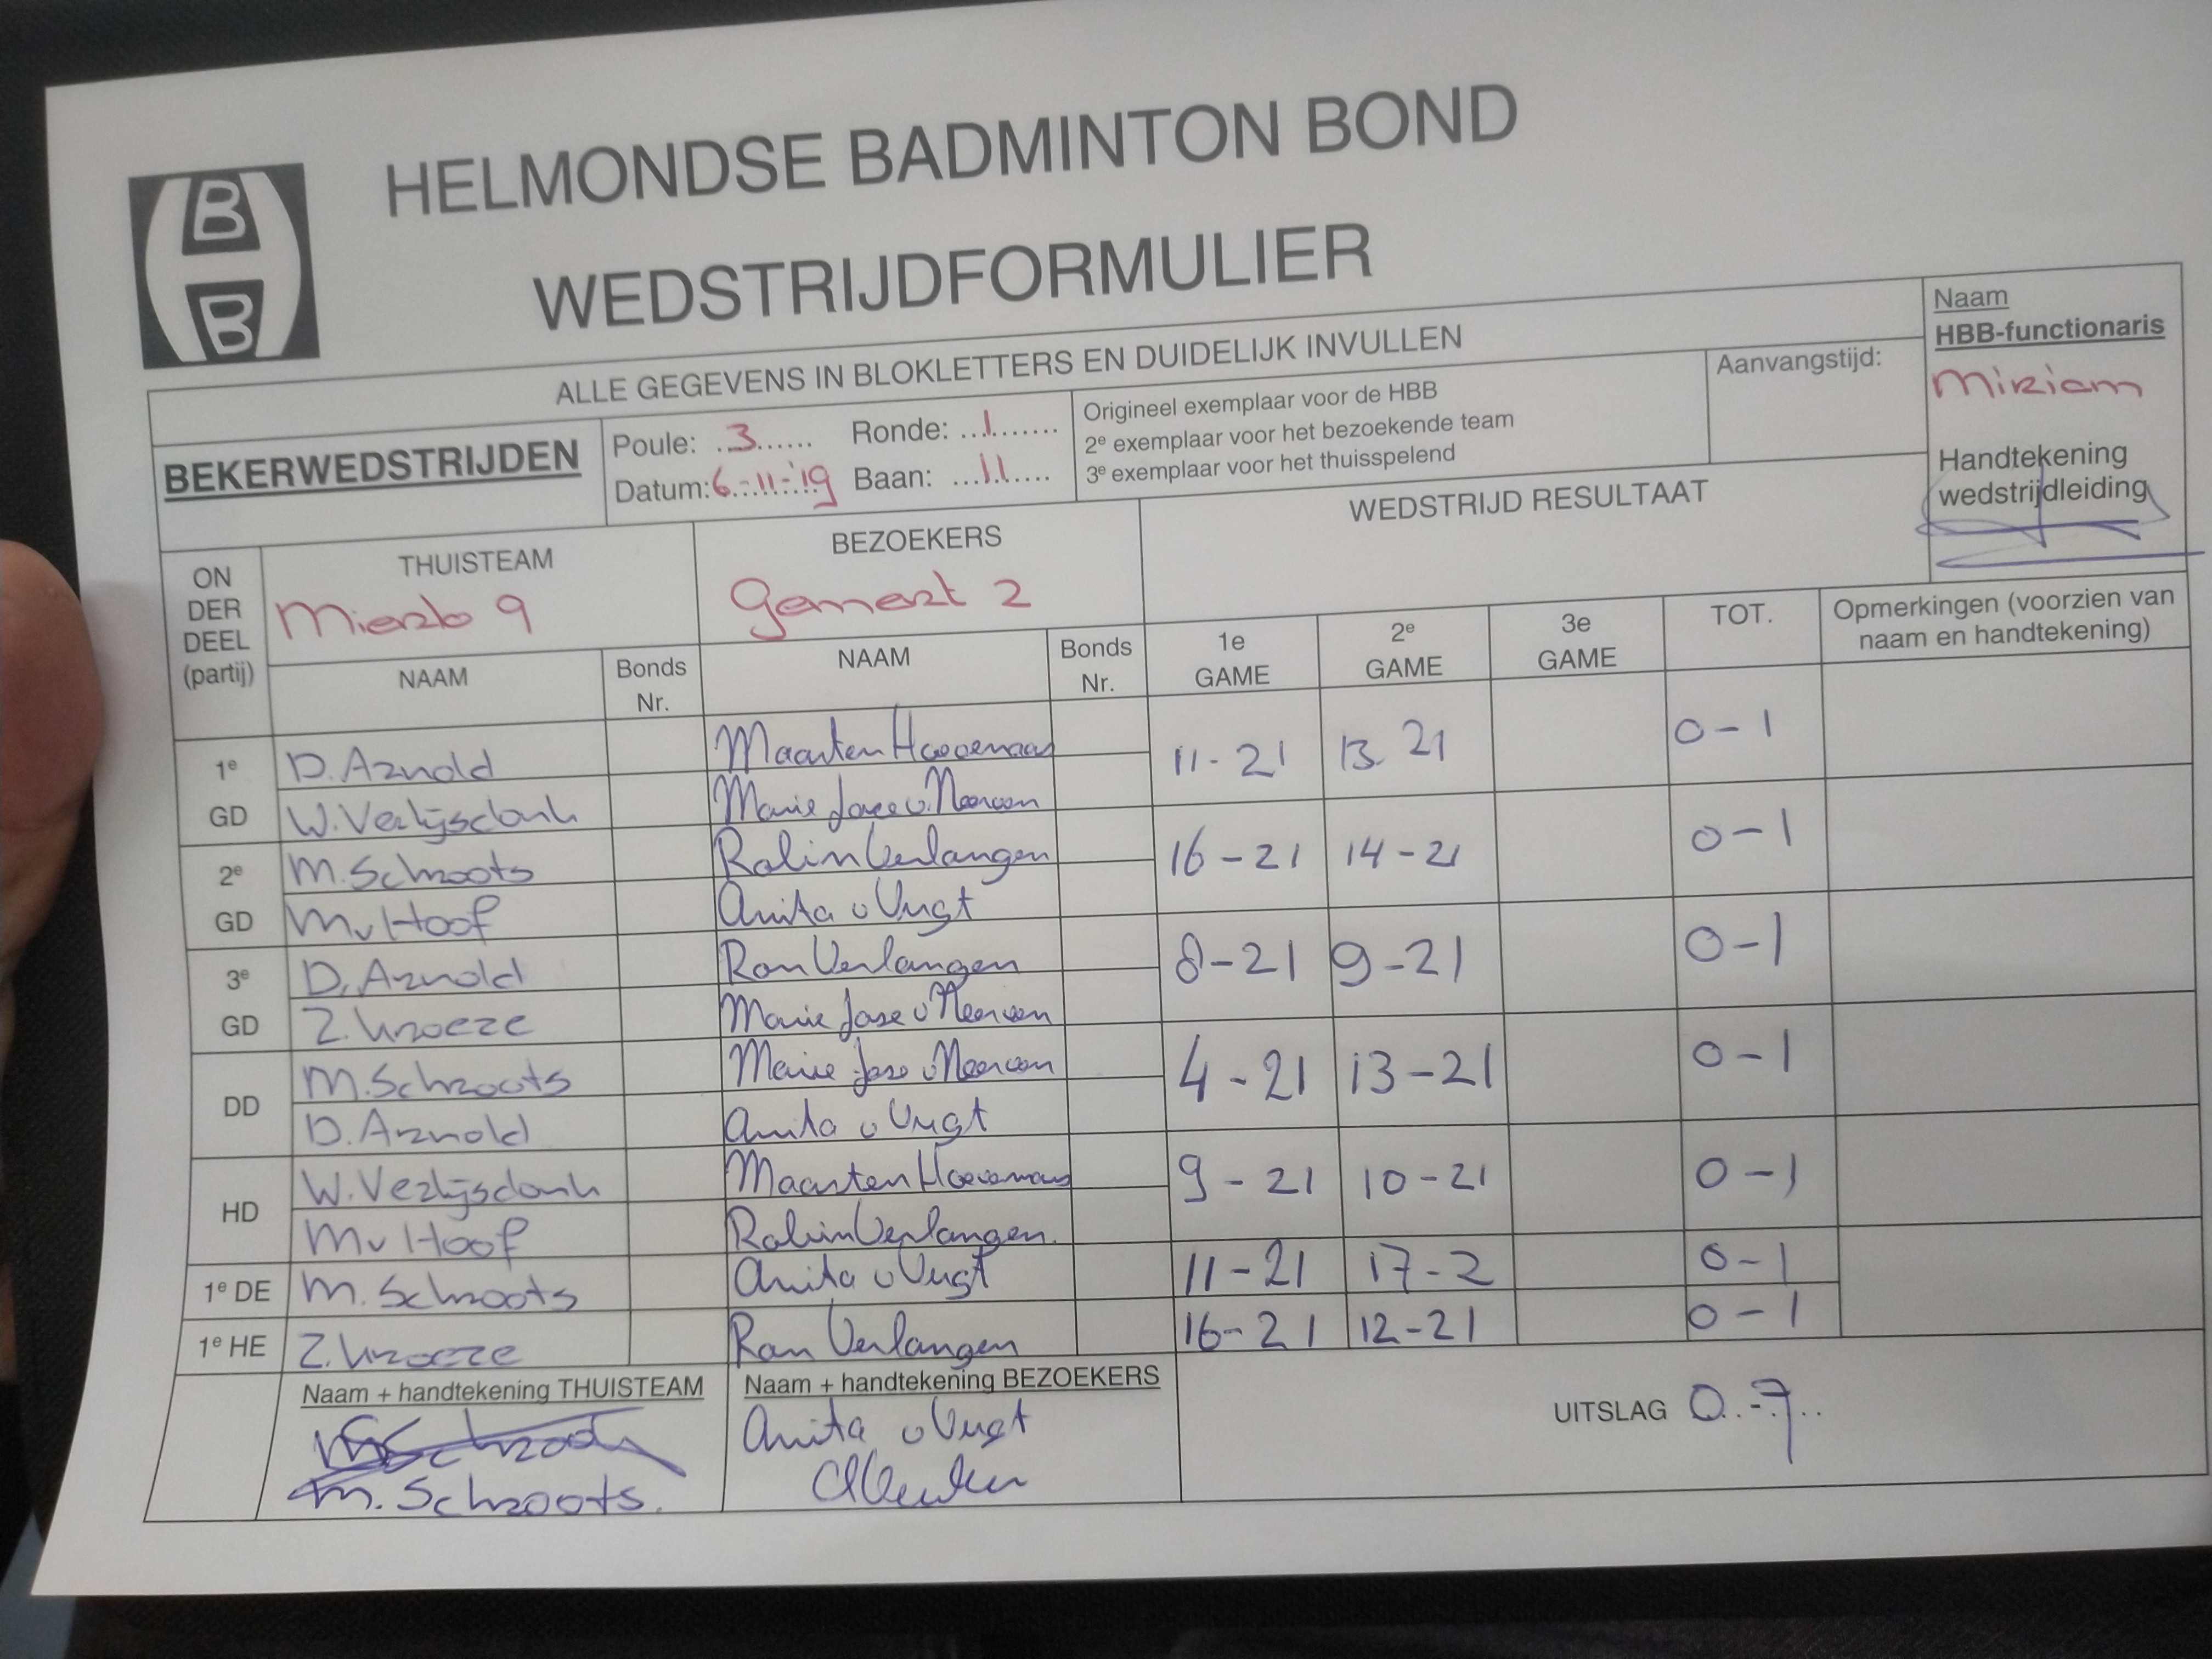 HELMONDSE BADMINTON BOND
WEDSTRIJDFORMULIER
ALLE GEGEVENS IN BLOKLETTERS EN DUIDELIJK INVULLEN
Naam
HBB-functionaris
Miriam
Handtekening
wedstrijdleiding
BEKERWEDSTRIJDEN
Poule: 3 Ronde: 1
Datum: 6-11-'19 Baan: 11
Origineel exemplaar voor de HBB
2e exemplaar voor het bezoekende team
3e exemplaar voor het thuisspelend
Aanvangstijd:
WEDSTRIJD RESULTAAT
ON
DER
DEEL
(partij)
THUISTEAM
Mierlo 9
BEZOEKERS
Gemert 2
NAAM Bonds Nr. NAAM Bonds Nr. 1e GAME 2e GAME 3e GAME TOT. Opmerkingen (voorzien van naam en handtekening)
1e D. Arnold Maarten 11-21 13 21 0-1
GD W. Verlijsdonk Marie Jose v.
2e M. Schroots Robin Verlangen 16-21 14-21 0-1
GD M v Hoof Anita v Vugt
3e D. Arnold Ron Verlangen 8-21 9-21 0-1
GD Z. Kroeze Marie Jose v
DD M. Schroots Marie Jose v 4-21 13-21 0-1
D. Arnold Anita v Vugt
HD W. Verlijsdonk Maarten 9-21 10-21 0-1
M v Hoof Robin Verlangen.
1e DE M. Schroots Anita v Vugt 11-21 17-2 0-1
1e HE Z. Kroeze Ron Verlangen 16-21 12-21 0-1
Naam + handtekening THUISTEAM
M. Schroots.
Naam + handtekening BEZOEKERS
Anita v Vugt
UITSLAG 0-7